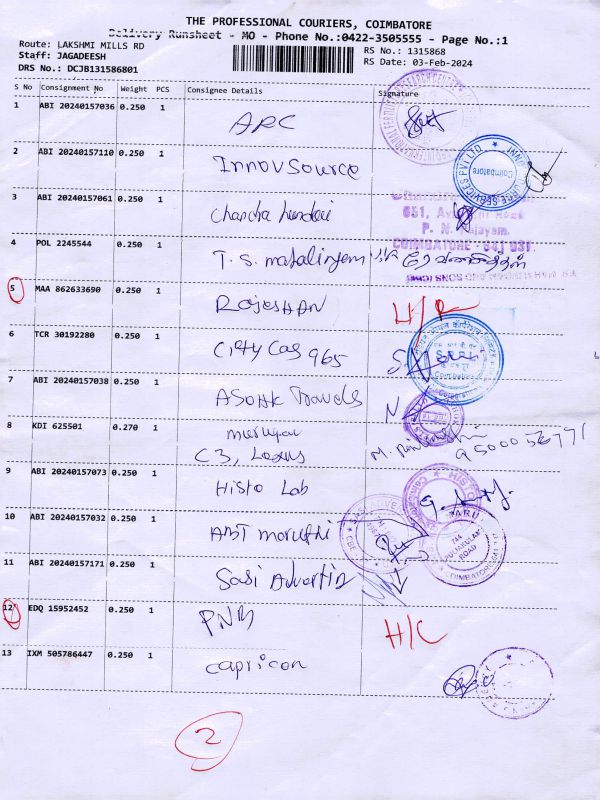 THE PROFESSIONAL COURIERS, COIMBATORE
Delivery Runsheet - MO - Phone No.:0422-3505555 - Page No.:1
Route: LAKSHMI MILLS RD
RS No.: 1315868
Staff: JAGADEESH
RS Date: 03-Feb-2024
DRS No.: DCJB131586801
S No Consignment No Weight PCS Consignee Details Signature
1 ABI 20240157036 0.250 1
ARC
2 ABI 20240157110 0.250 1
Innovsource
3 ABI 20240157061 0.250 1
Chandra
651,
P. N. Palayam,
COIMBATORE - 641 037.
4 POL 2245544 0.250 1
T. S. mahalingem
5 MAA 862633690 0.250 1
RAJESHAN
6 TCR 30192280 0.250 1
City Cas 965
Coimbatore
7 ABI 20240157038 0.250 1
ASOHK Travels
8 KDI 625501 0.270 1
C3, Lotus
M.
9500056771
9 ABI 20240157073 1 0.250 1
Histo Lab
10 ABI 20240157032 0.250 1
ABT maruthi
744
PULIAKULAM
ROAD
11 ABI 20240157171 0.250 1
Sasi Advertin
12 EDQ 15952452 0.250 1
PNB
H/C
13 IXM 505786447 0.250 1
Capricon
2